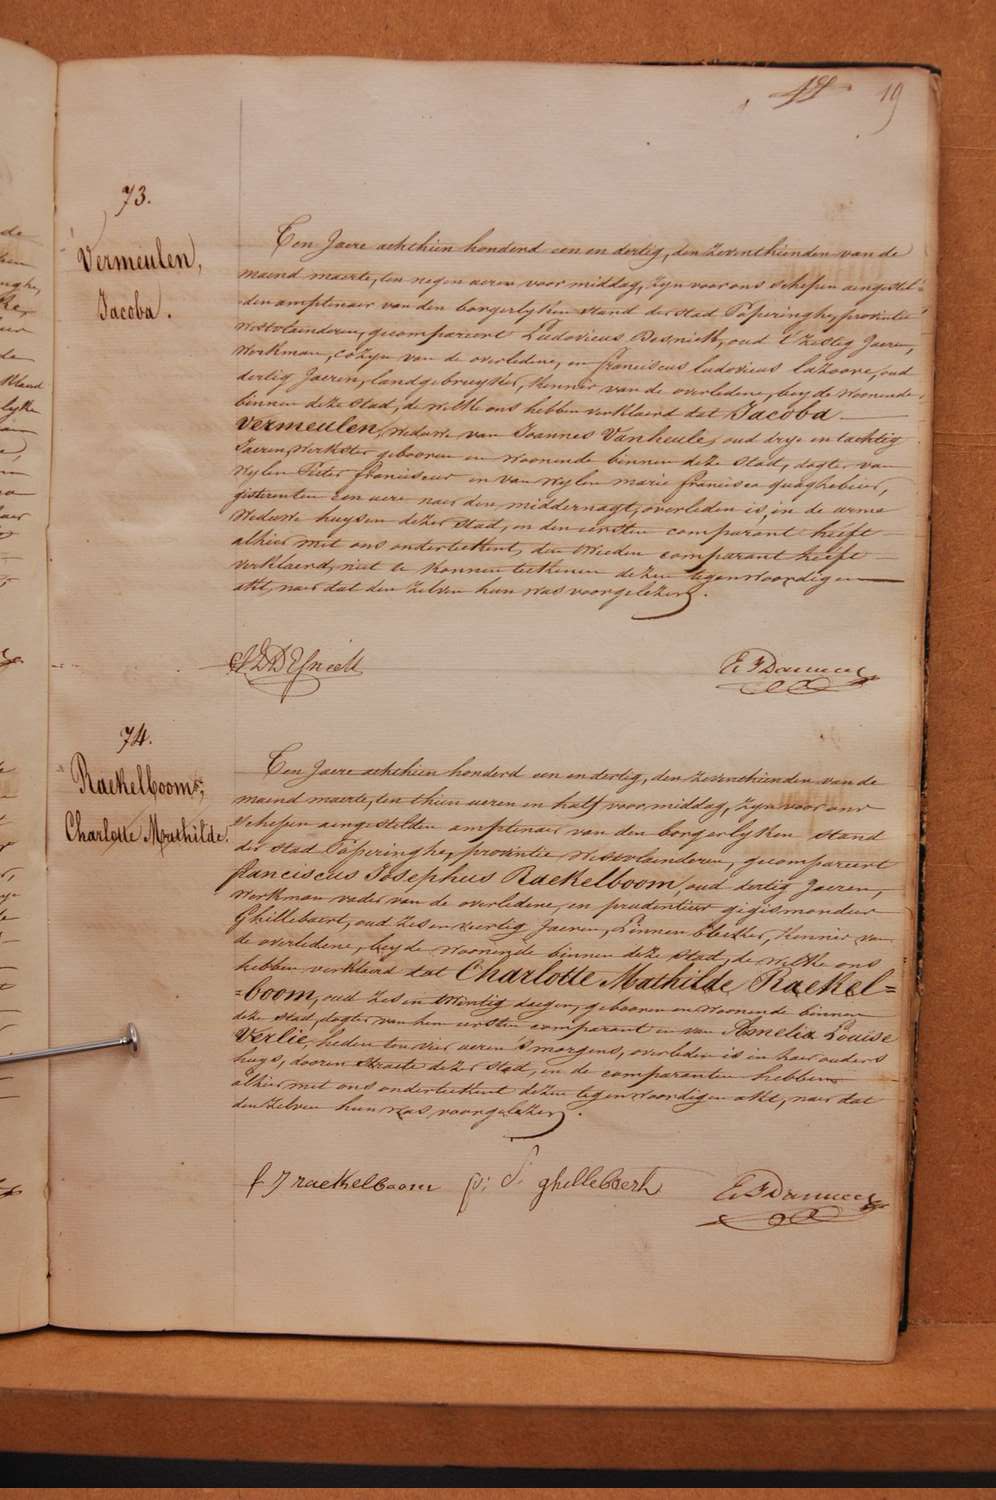 19
73.
Vermeulen,
Jacoba.
Ten Jaere achthien honderd een en dertig, den zeventhienden van de
maend maerte, ten negen ueren voor middag, zyn voor ons schepen aengestel=
den amptenaer van den borgerlyken stand der stad Poperinghe, provintie
Westvlaenderen, gecompareert Ludovicus Desnick, oud t'zestig Jaeren,
Werkman, cozyn van de overledene, en franciscus ludovicus laZoore, oud
dertig Jaeren, landgebruyker, kennis van de overledene, beyde woonende
binnen deze stad, de welke ons hebben verklaerd dat Jacoba
Vermeulen, Weduwe van Joannes Vanheule, oud drye en tachtig
Jaeren, Werkster gebooren en woonende binnen deze stad, dogter van
Wylen Pieter franciscus en van Wylen marie francisca quaghebeur,
gisterenten een uere naer den middernagt, overleden is, in de arme
Weduwe huysen dezer stad, en den eersten comparant heeft
alhier met ons onderteekent, den tweeden comparant heeft
verklaerd, niet te konnen teekenen dezen tegenwoordigen
akt, naer dat den zelven hun was voorgelezen.
74.
Raekelboom,
Charlotte Mathilde.
Ten Jaere achthien honderd een en dertig, den zeventhienden van de
maend maerte, ten thien ueren en half voor middag, zyn voor ons
schepen aengestelden amptenaer van den borgerlyken stand
der stad Poperinghe, provintie Westvlaenderen, gecompareert
franciscus Josephus Raekelboom, oud dertig Jaeren,
Werkman vader van de overledene, en prudentius gigismondus
Ghillebaert, oud zes en veertig Jaeren, Linnen bleeker, kennis van
de overledene, beyde woonende binnen deze stad, de welke ons
hebben verklaerd dat Charlotte Mathilde Raekel=
=boom, oud zes en twintig dagen, gebooren en woonende binnen
deze stad, dogter van hem eersten comparant en van Amelia Louise
Verlie, heden ten vier ueren 's morgens, overleden is in haer ouders
huys, dooren straete dezer stad, en de comparanten hebben
alhier met ons onderteekent dezen tegenwoordigen akt, naer dat
den zelven hun was voorgelezen.
f J raekelboom p: S: ghillebaert